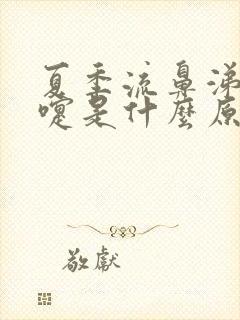 夏季流鼻涕
嚏是什麼原
敬獻